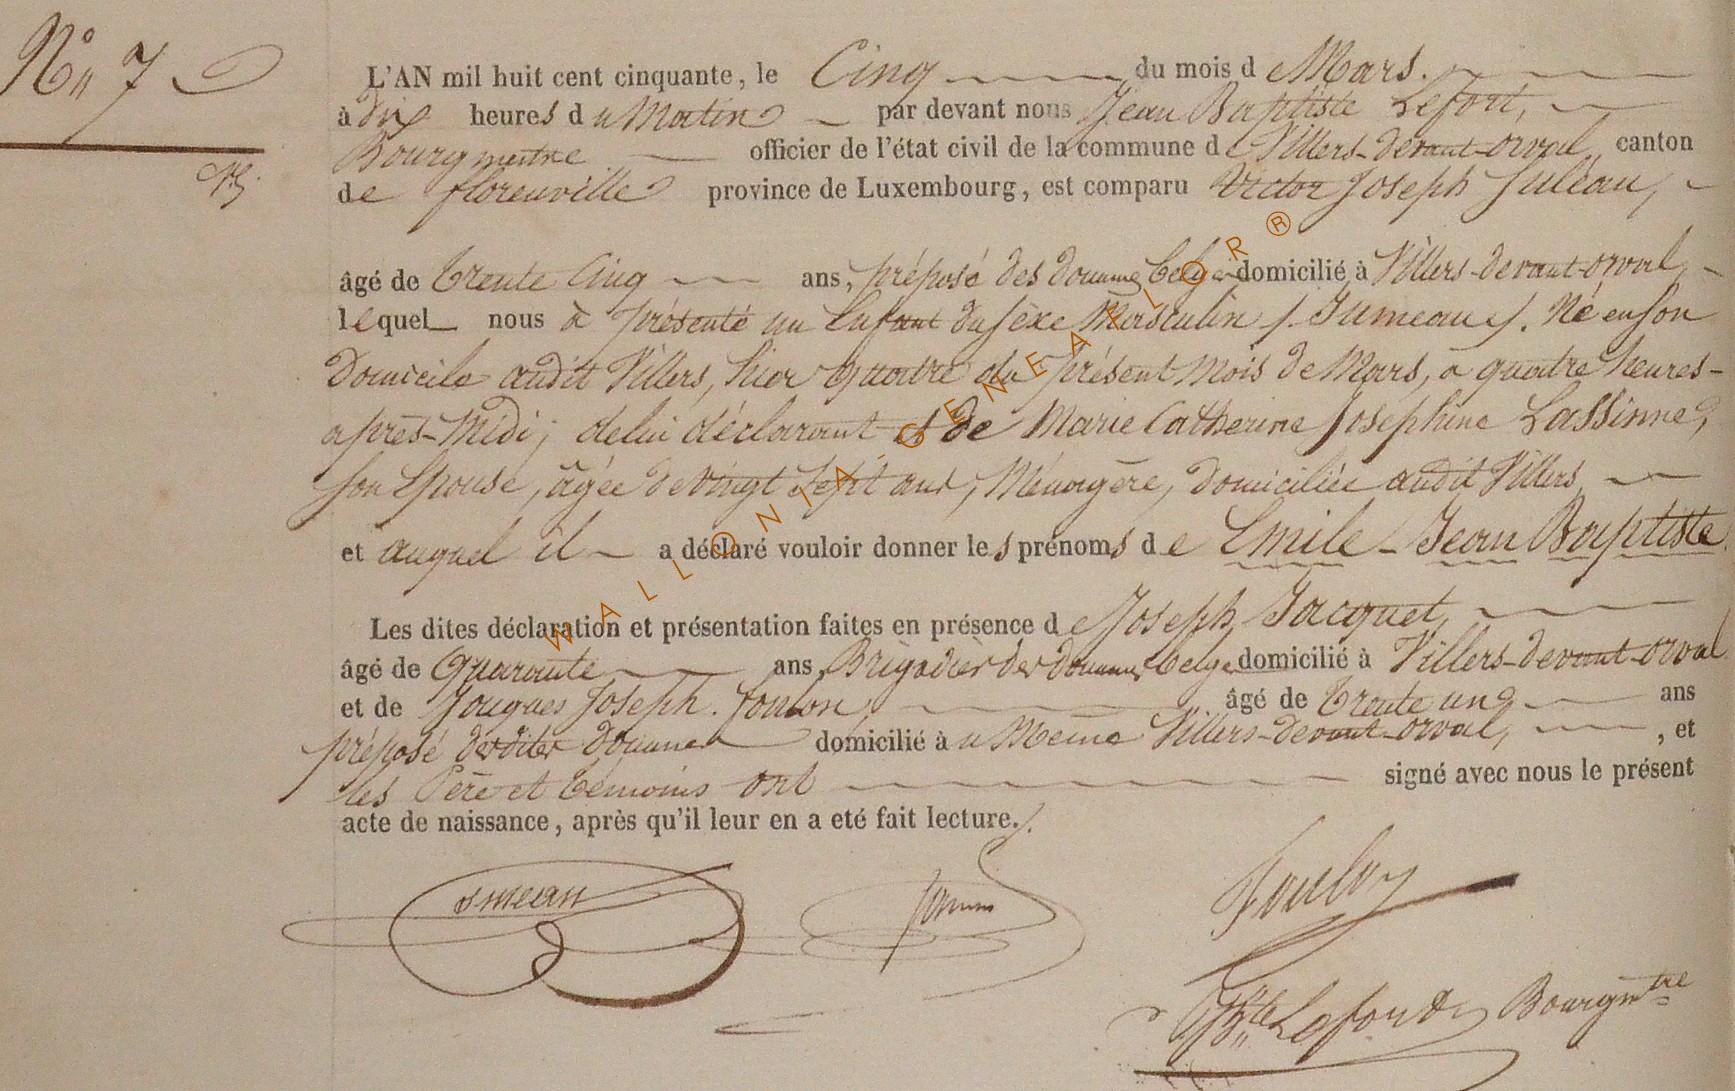 N° 7
L'AN mil huit cent cinquante, le Cinq du mois de Mars.
à dix heures du Matin par devant nous Jean Baptiste Lefort,
Bourgmestre officier de l'état civil de la commune de Villers-devant-orval, canton
de florenville province de Luxembourg, est comparu Victor Joseph
âgé de trente Cinq ans, préposé des douanes belges domicilié à Villers-devant-orval,
lequel nous à présenté un Enfant du sèxe Masculin /. Jumeau /. Né en son
Domicile audit Villers, hier quatre du présent mois de Mars, à quatre heures-
après-Midi; de lui déclarant et de Marie Catherine Joséphine Lassinne,
son Epouse, âgée de vingt sept ans, Ménagère, domiciliée audit Villers
et auquel il a déclaré vouloir donner les prénoms de Emile-Jean Baptiste
Les dites déclaration et présentation faites en présence de Joseph Jacquet,
âgé de Quarante ans, Brigadier des douanes belges domicilié à Villers-devant-orval
et de Jacques Joseph. foulon, âgé de trente un ans
préposé desdites douanes domicilié au Même Villers-devant-orval, , et
les Père et témoins ont signé avec nous le présent
acte de naissance, après qu'il leur en a eté fait lecture./.
Foulon
Lefort Bourgmtre
WALLONIA-GENEALOR®